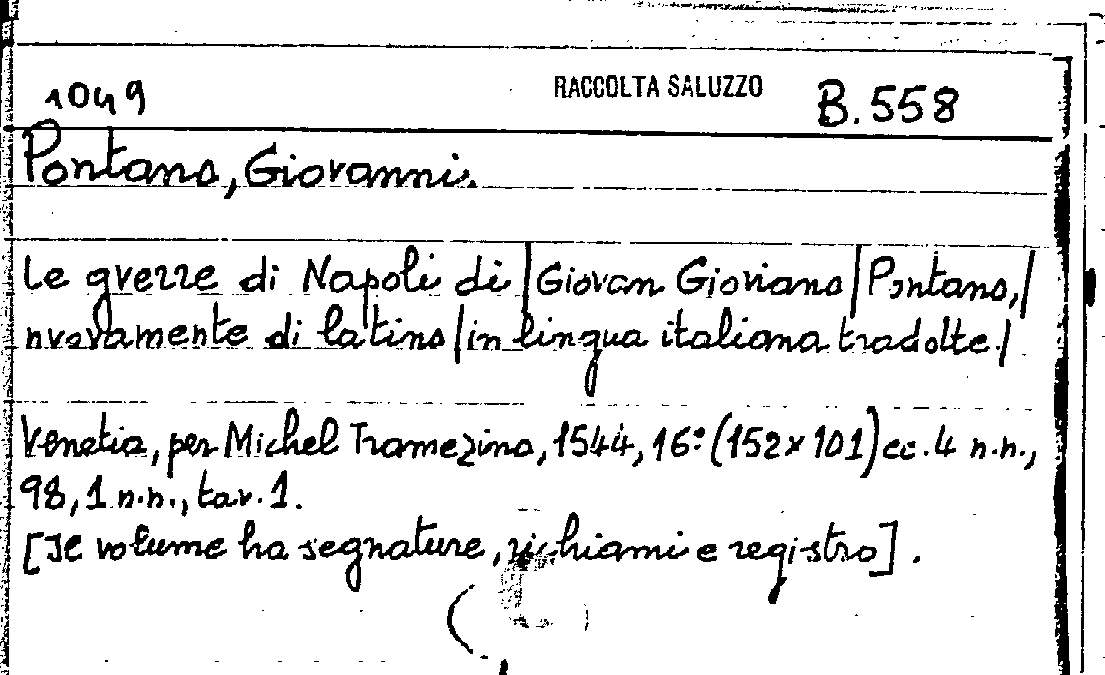 1049 RACCOLTA SALUZZO B.558
Pontano, Giovanni.
Le gverre di Napoli di | Giovan Gioviano | Pontano, |
nvovamente di latino | in lingua italiana tradotte. |
Venetia, per Michel Tramezino, 1544, 16º (152x101) cc. 4 n.n.,
98, 1 n.n., tav. 1.
[Il volume ha segnature, richiami e registro].